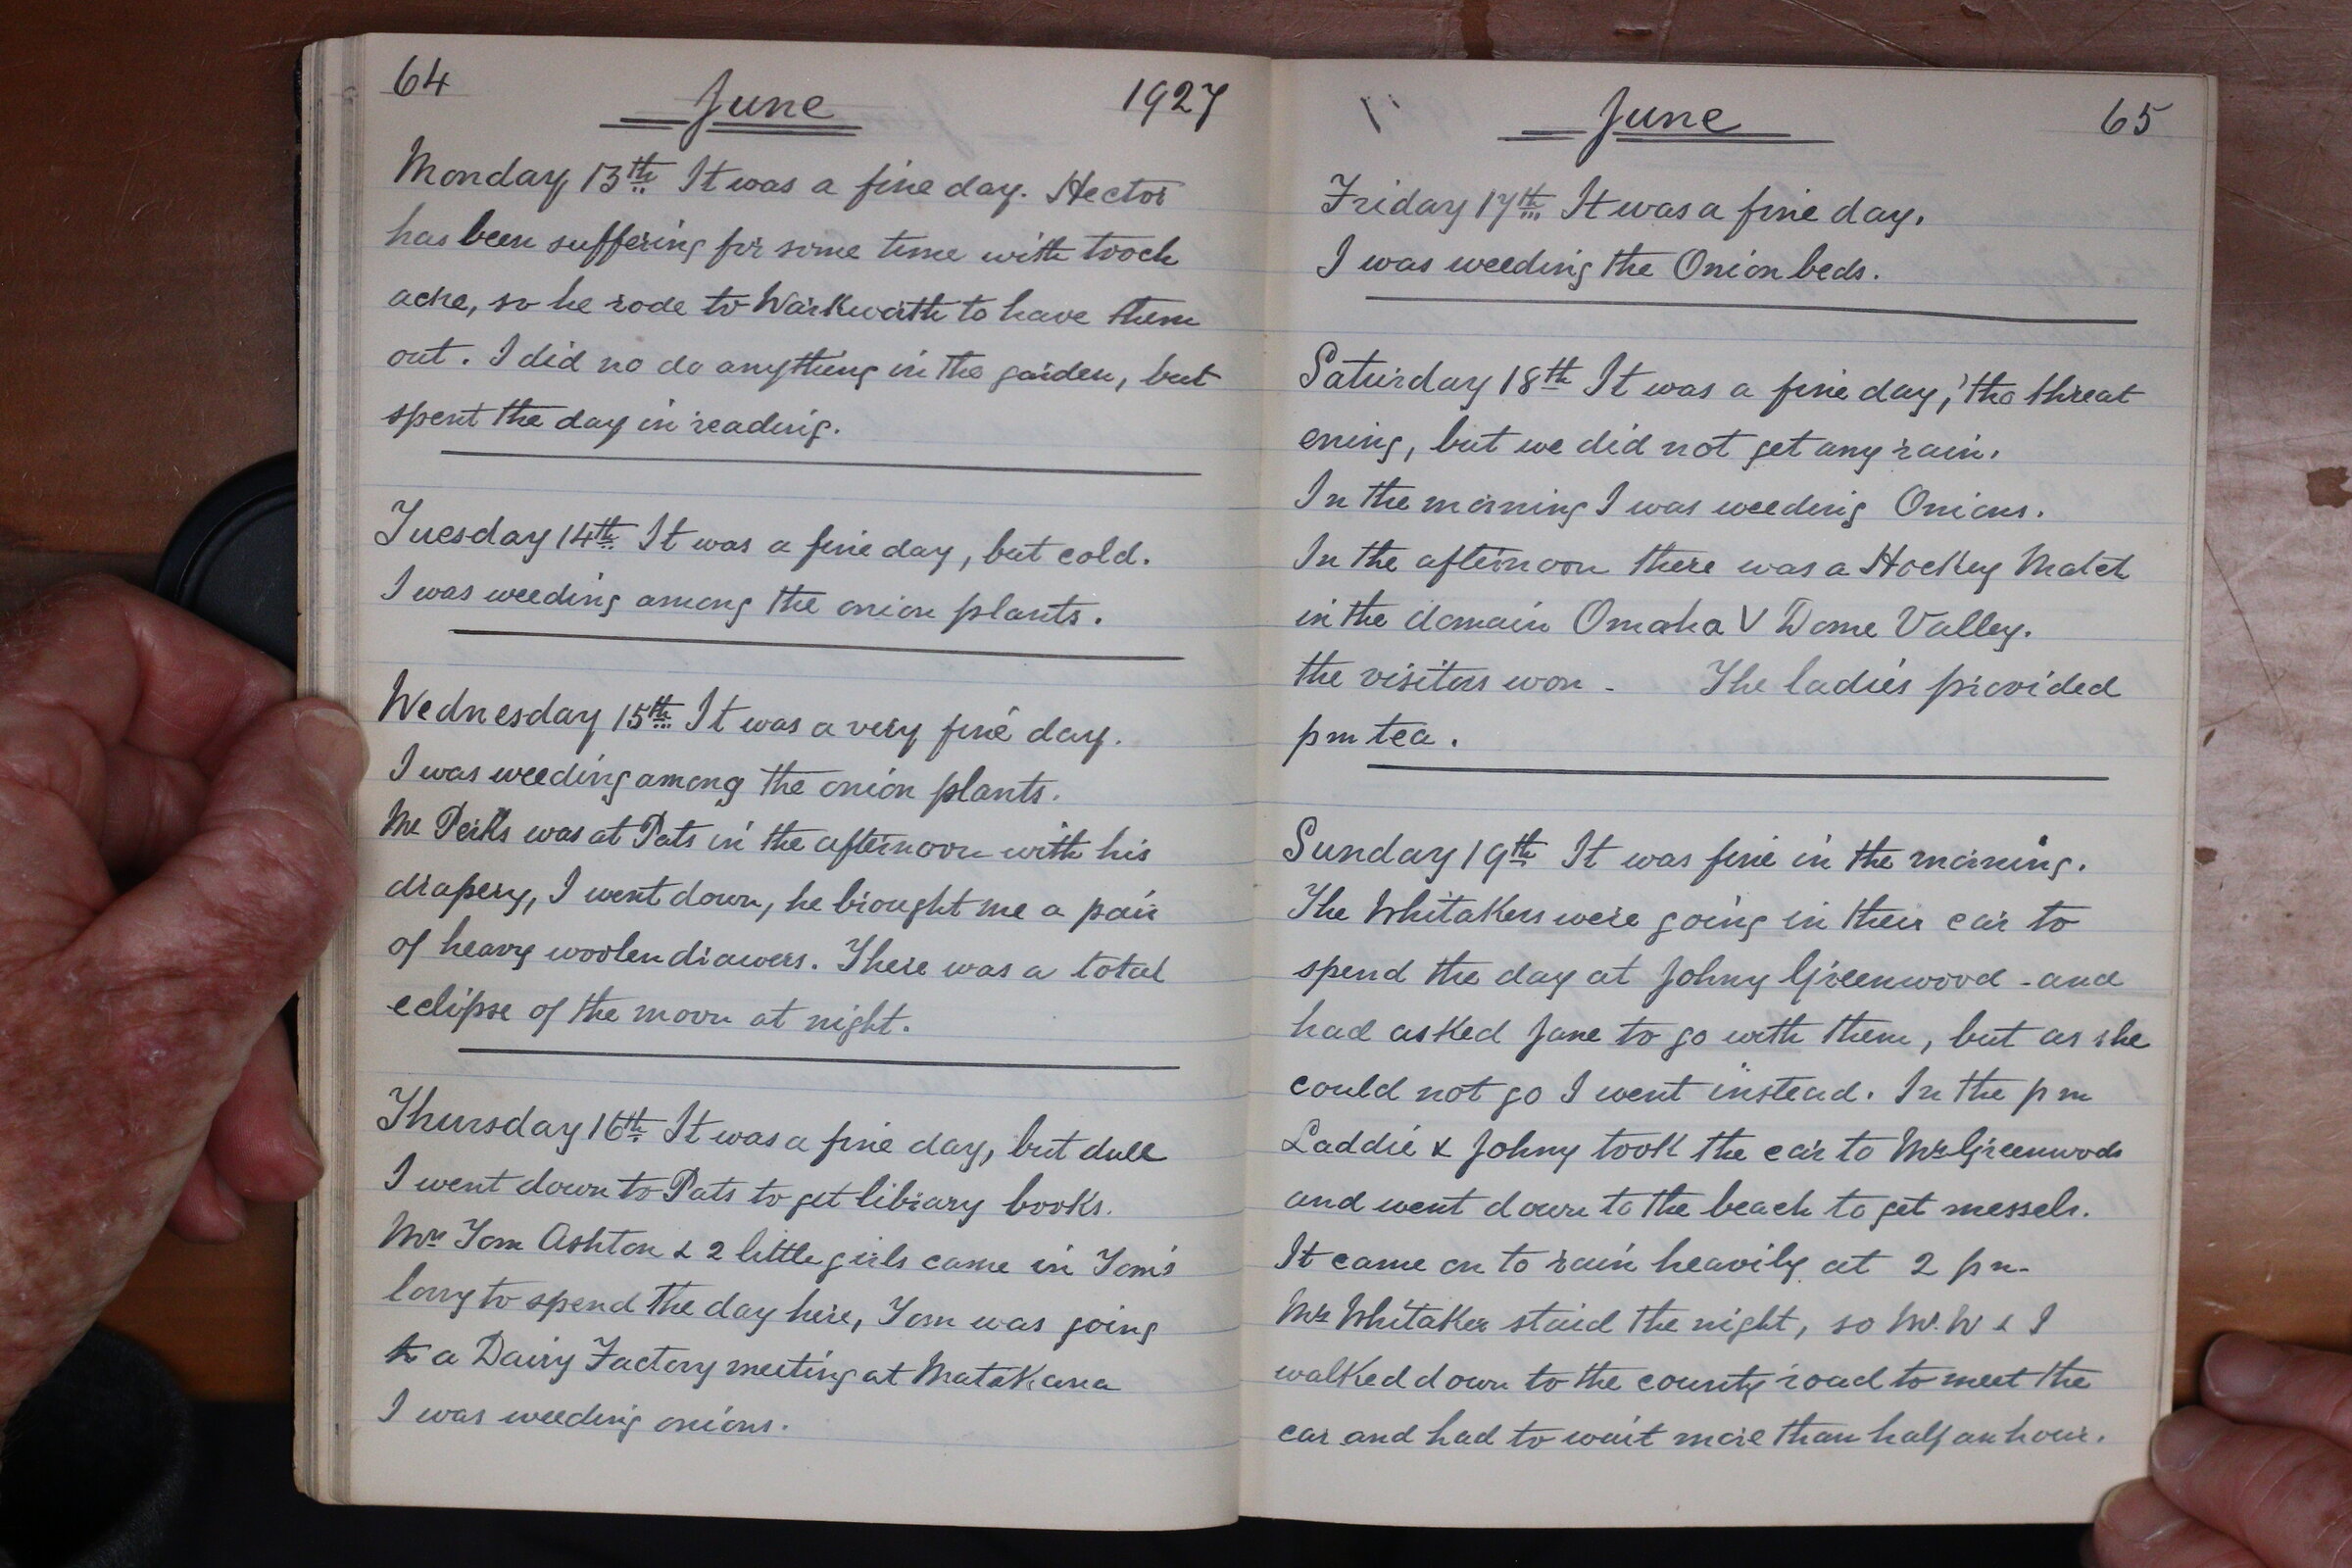 64
June
1927
Monday, 13th It was a fine day. Hector
has been suffering for some time with tooch
ache, so he rode to Warkworth to have them
out. I did no do anything in the garden, but
spent the day in reading.
Tuesday 14th It was a fine day, but cold.
I was weeding among the onion plants.
Wednesday 15th It was a very fine day.
I was weeding among the onion plants.
Mr Perks was at Pats in the afternoon with his
drapery, I went down, he brought me a pair
of heavy woolen drawers. There was a total
eclipse of the moon at night.
Thursday 16th It was a fine day, but dull
I went down to Pats to get library books.
Mrs Tom Ashton & 2 little girls came in Tom's
lorry to spend the day here, Tom was going
to a Dairy Factory meeting at Matakana
I was weeding onions.
June
65
Friday 17th It was a fine day.
I was weeding the Onion beds.
Saturday 18th It was a fine day, 'tho threat
ening, but we did not get any rain.
In the morning I was weeding Onions.
In the afternoon there was a Hockey Match
in the domain Omaha V Dome Valley.
the visitors won - The ladies provided
pm tea.
Sunday 19th It was fine in the morning.
The Whitakers were going in their car to
spend the day at Johny Greenwood - and
had asked Jane to go with them, but as she
could not go I went instead. In the pm
Laddie & Johny took the car to Mr Greenwoods
and went down to the beach to get messels.
It came on to rain heavily at 2 pm.
Mr Whitaker staid the night, so W. W & I
walked down to the county road to meet the
car and had to wait more than half an hour.